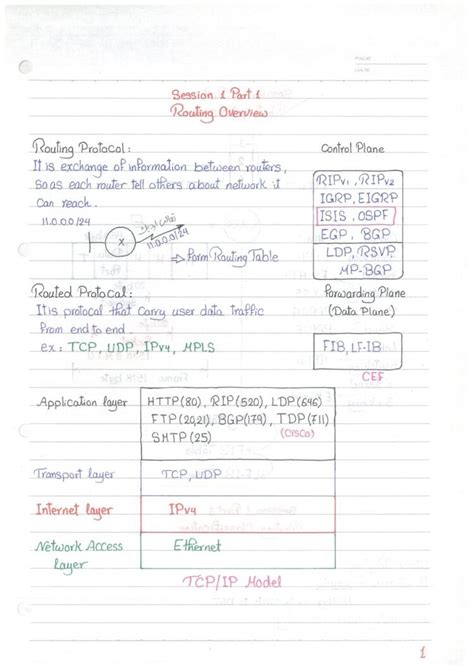 Session 1 Part 1
Routing Overview
Routing Protocol:
It is exchange of information between routers,
so as each router tell others about network it
Can reach.
11.0.0.0/24
X
11.0.0.0/24
Form Routing Table
Control Plane
RIPv1, RIPv2
IGRP, EIGRP
ISIS, OSPF
EGP, BGP
LDP, RSVP
MP-BGP
Routed Protocal:
It is protocal that carry user data traffic
from end to end.
ex: TCP, UDP, IPv4, MPLS
Forwarding Plane
(Data Plane)
FIB, LF-IB
CEF
Application layer
HTTP(80), RIP(520), LDP(646)
FTP(20,21), BGP(179), TDP(711)
SMTP(25)
(CISCO)
Transport layer
TCP, UDP
Internet layer
IPv4
Network Access
layer
Ethernet
TCP/IP Model
1